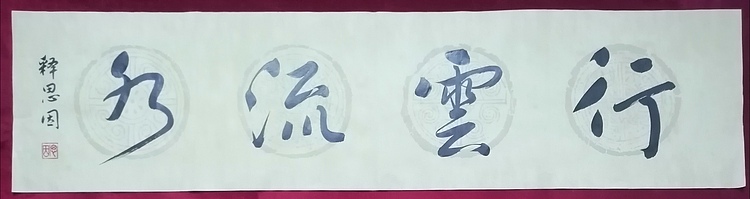 行雲流水
釋思因